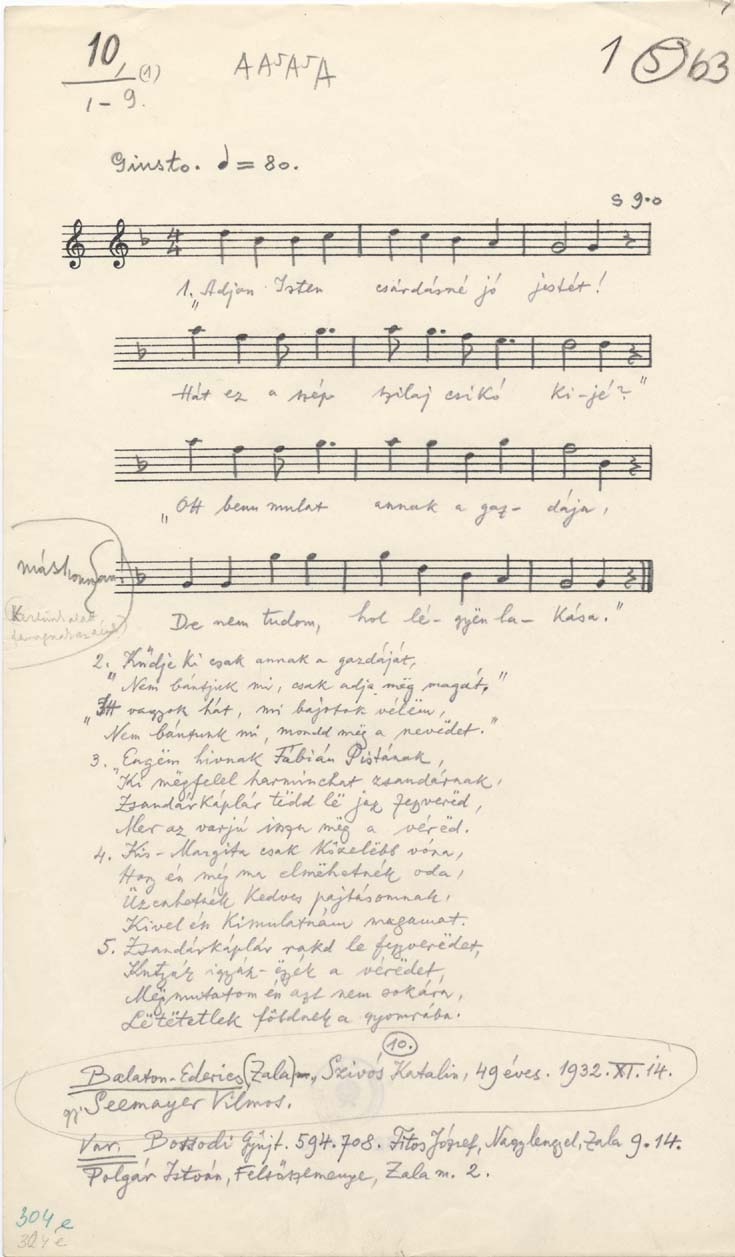 10, (1)
1-9.
A A⁵ A⁵ A
1 5 63
Giusto. = 80.
S 9.0
4
4
1. "Adjon Isten csárdásné jó jestét!
Hát ez a szép szilaj csikó ki-jé?"
"Ott benn mulat annak a gaz- dája,
máshonnan!
De nem tudom, hol lé- gyën la- kása."
2. Küdje ki csak annak a gazdáját,
"Nem bántjuk mi, csak adja még magát."
"Itt vagyok hát, mi bajotok vélëm,
Nem bántunk mi, mondd mëg a nevedet."
3. Engëm hivnak Fábián Pistának,
"Ki mëgfelel harminchat zsandárnak,
Zsandárkáplár tëdd lë jaz fegyverëd,
Mer az varjú issza mëg a vérëd.
4. Kis-Margita csak közelébb vóna,
Hogy én még ma elmëhetnék oda,
Üzenhetnék kedves pajtásomnak,
Kivel én kimulatnám magamat.
5. Zsandárkáplár rakd le fegyverëdet,
Kutyák igyák-ëgyék a vérëdet,
Mëgmutatom én azt nem sokára,
Lëtëtetlek földnek a gyomrába.
10.
Balaton-Ederics (Zala) m., Szivós Katalin, 49 éves. 1932. XI. 14.
gy. Seemayer Vilmos.
Var. Bossodi Gyüjt. 594. 708. Titos József, Nagylengyel, Zala 9. 14.
Polgár István, Felsőszemenye, Zala m. 2.
304 e
304 e